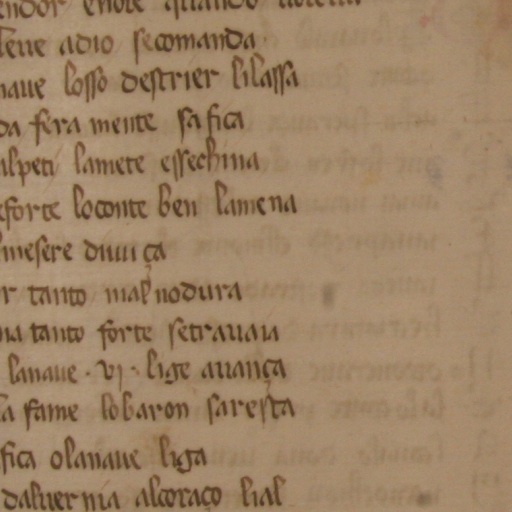 endor enole quando
leue adio secomanda
naue losso destrier lilassa
da fera mente safica
alpeti lamete essechina
eforte loconte ben lamena
mesere diuiça
r tanto mal nodura
ma tanto forte setrauaia
lanaue · vj · lige auança
la fame lobaron saresta
fica olanaue liga
daluernia alcoraço lial